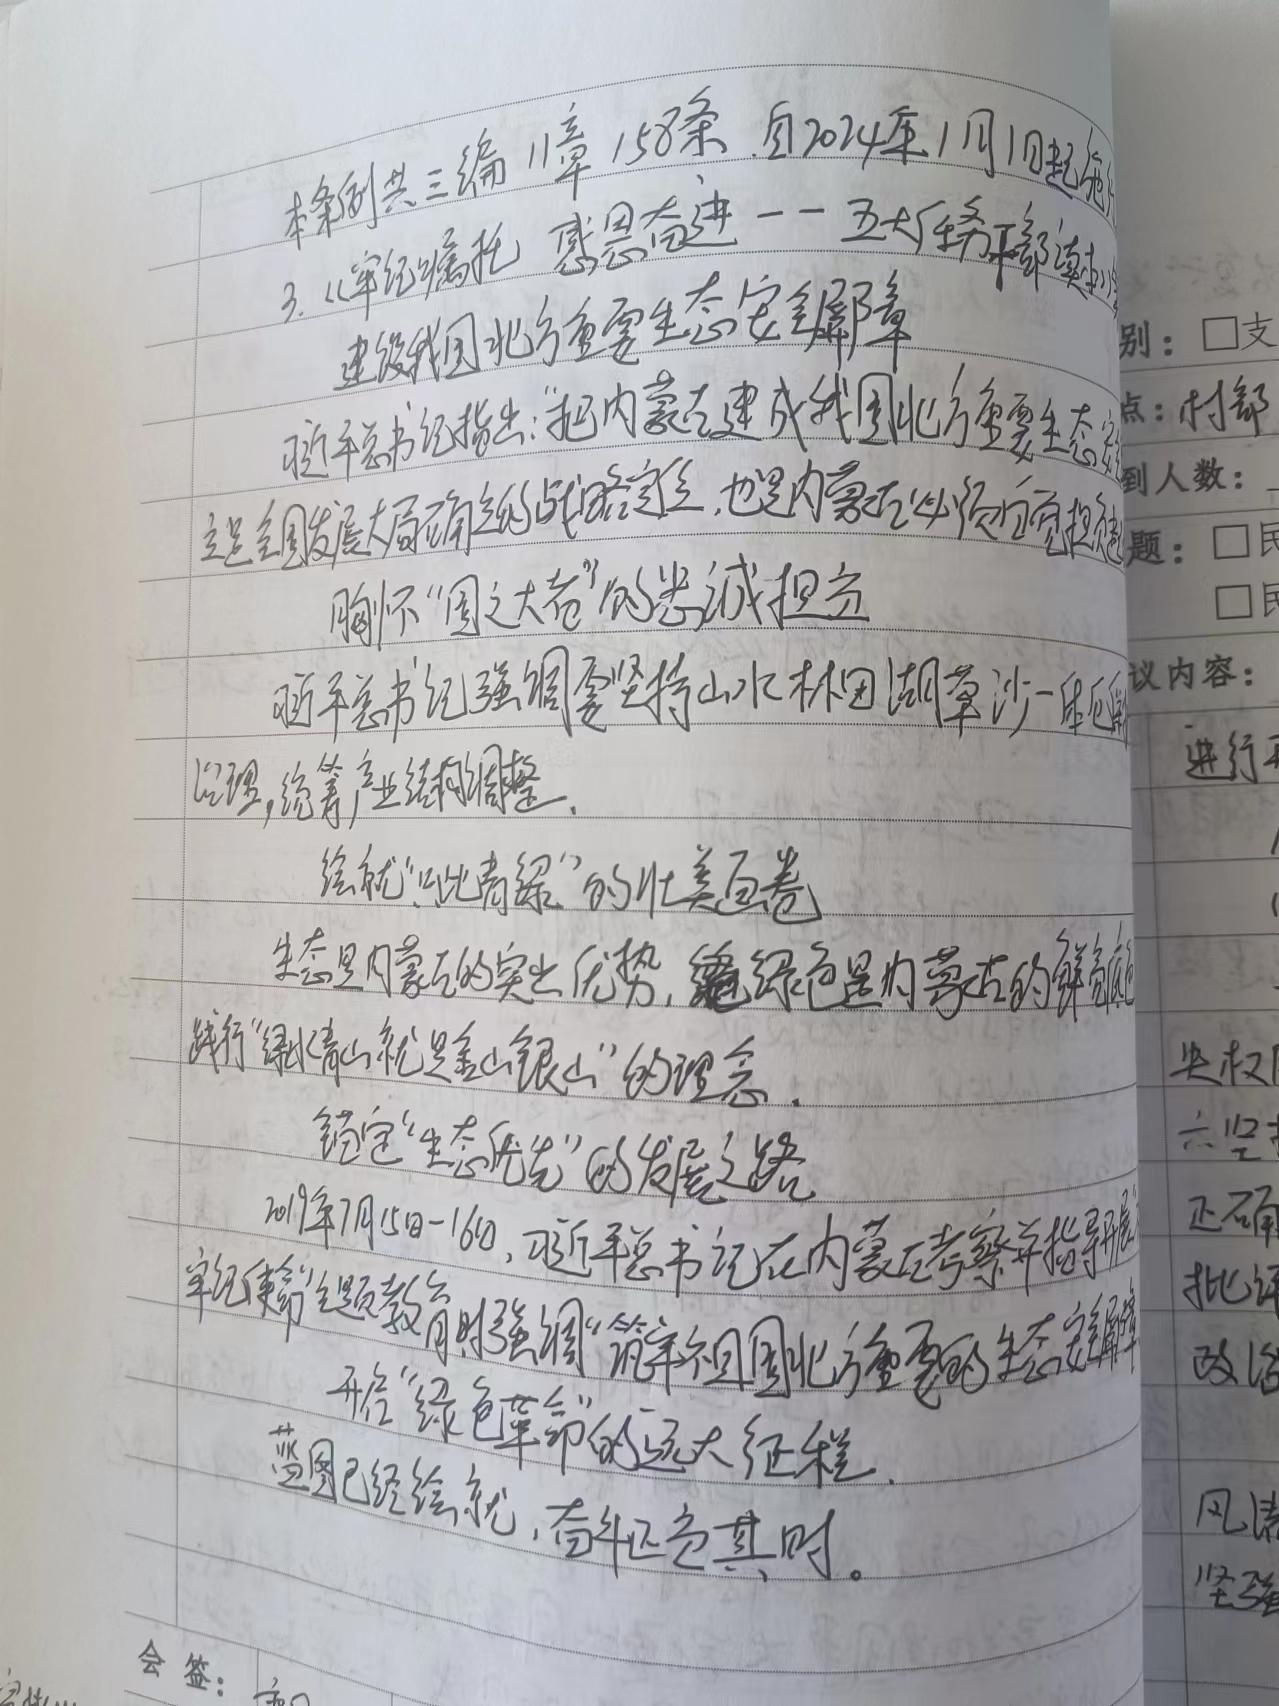 本条例共三编11章158条,自2024年1月1日起施行
3.《牢记嘱托 感恩奋进——五大任务干部读本》
建设我国北方重要生态安全屏障
习近平总书记指出:“把内蒙古建成我国北方重要生态安
立足全国发展大局确立的战略定位,也是内蒙古必须自觉担负
胸怀“国之大者”的忠诚担当
习近平总书记强调要坚持山水林田湖草沙一体化
治理,统筹产业结构调整.
绘就“只此青绿”的壮美画卷
生态是内蒙古的突出优势,绿色是内蒙古的鲜亮底色
践行“绿水青山就是金山银山”的理念.
锚定“生态优先”的发展之路
2019年7月15日-16日,习近平总书记在内蒙古考察并指导开展
牢记使命”主题教育时强调“筑牢祖国北方重要的生态安全屏障
开启“绿色革命”的远大征程.
蓝图已经绘就,奋斗正当其时。
会 签:
别: □支
点: 村部
到人数:
题: □民
□民
议内容:
进行
央权
六坚
正确
批评
政治
风清
坚强